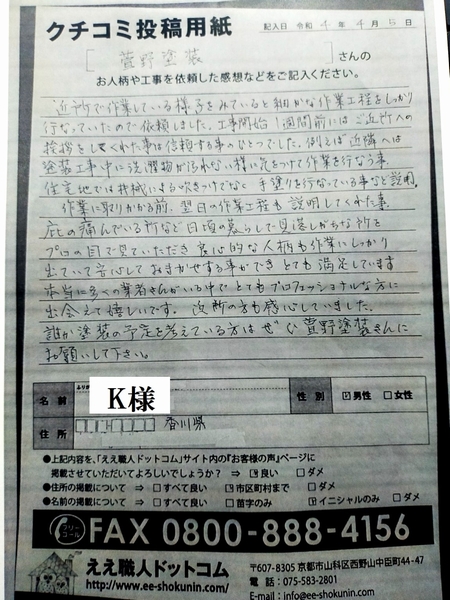 クチコミ投稿用紙
記入日 令和 4 年 4 月 5 日
菅野塗装 さんの
お人柄や工事を依頼した感想などをご記入ください。
近所で作業している様子をみていると細かな作業工程をしっかり
行なっていたので依頼しました。工事開始1週間前にはご近所への
挨拶をしてくれた事は信頼する事のひとつでした。例えば近隣へは
塗装工事中に洗濯物が汚れない様に気をつけて作業を行なう事、
住宅地では機械による吹きつけでなく 手塗りを行なっている事など説明。
作業に取りかかる前、翌日の作業工程も説明してくれた事、
庇の痛んでいる所など日頃の暮らしで見落しがちな所を
プロの目で見ていただき 良心的な人柄も作業にしっかり
出ていて安心しておまかせする事ができ とても満足しています
本当に多くの業者さんがいる中でとてもプロフェッショナルな方に
出会えて嬉しいです。近所の方も感心していました。
誰か塗装の予定を考えている方はぜひ菅野塗装さんに
お願いして下さい。
名前
K様
性別
男性 女性
住所
香川県
●上記内容を、「ええ職人ドットコム」サイト内の『お客様の声』ページに
掲載させていただいてよろしいでしょうか? ⇒ 良い ダメ
●住所の掲載について ⇒ すべて良い 市区町村まで ダメ
●名前の掲載について ⇒ すべて良い 苗字のみ イニシャルのみ ダメ
フリーコール FAX 0800-888-4156
ええ職人ドットコム
http://www.ee-shokunin.com/
〒607-8305 京都市山科区西野山中臣町44-47
電話:075-583-2801
E-mail:info@ee-shokunin.com